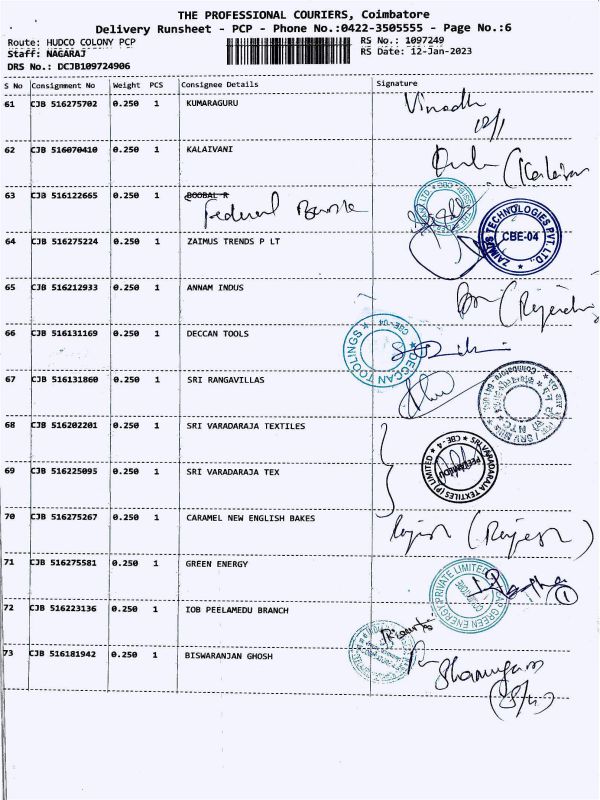 THE PROFESSIONAL COURIERS, Coimbatore
Delivery Runsheet - PCP - Phone No.:0422-3505555 - Page No.:6
Route: HUDCO COLONY PCP
RS No.: 1097249
Staff: NAGARAJ
RS Date: 12-Jan-2023
DRS No.: DCJB109724906
S No Consignment No Weight PCS Consignee Details Signature
61 CJB 516275702 0.250 1 KUMARAGURU
Vinodh
12/1
62 CJB 516070410 0.250 1 KALAIVANI
63 CJB 516122665 0.250 1 BOOBAL R
Federal Bank
64 CJB 516275224 0.250 1 ZAIMUS TRENDS P LT
ZAIMUS TECHNOLOGIES PVT. LTD.,
CBE-04
65 CJB 516212933 0.250 1 ANNAM INDUS
66 CJB 516131169 0.250 1 DECCAN TOOLS
DECCAN TOOLINGS
CBE-04
67 CJB 516131860 0.250 1 SRI RANGAVILLAS
68 CJB 516202201 0.250 1 SRI VARADARAJA TEXTILES
SRI VARADARAJA TEXTILES (P) LIMITED
CBE-4
69 CJB 516225095 0.250 1 SRI VARADARAJA TEX
70 CJB 516275267 0.250 1 CARAMEL NEW ENGLISH BAKES
Rajesh (Rajesh)
71 CJB 516275581 0.250 1 GREEN ENERGY
GREEN ENERGY PRIVATE LIMITED
72 CJB 516223136 0.250 1 IOB PEELAMEDU BRANCH
73 CJB 516181942 0.250 1 BISWARANJAN GHOSH
Shanmugam